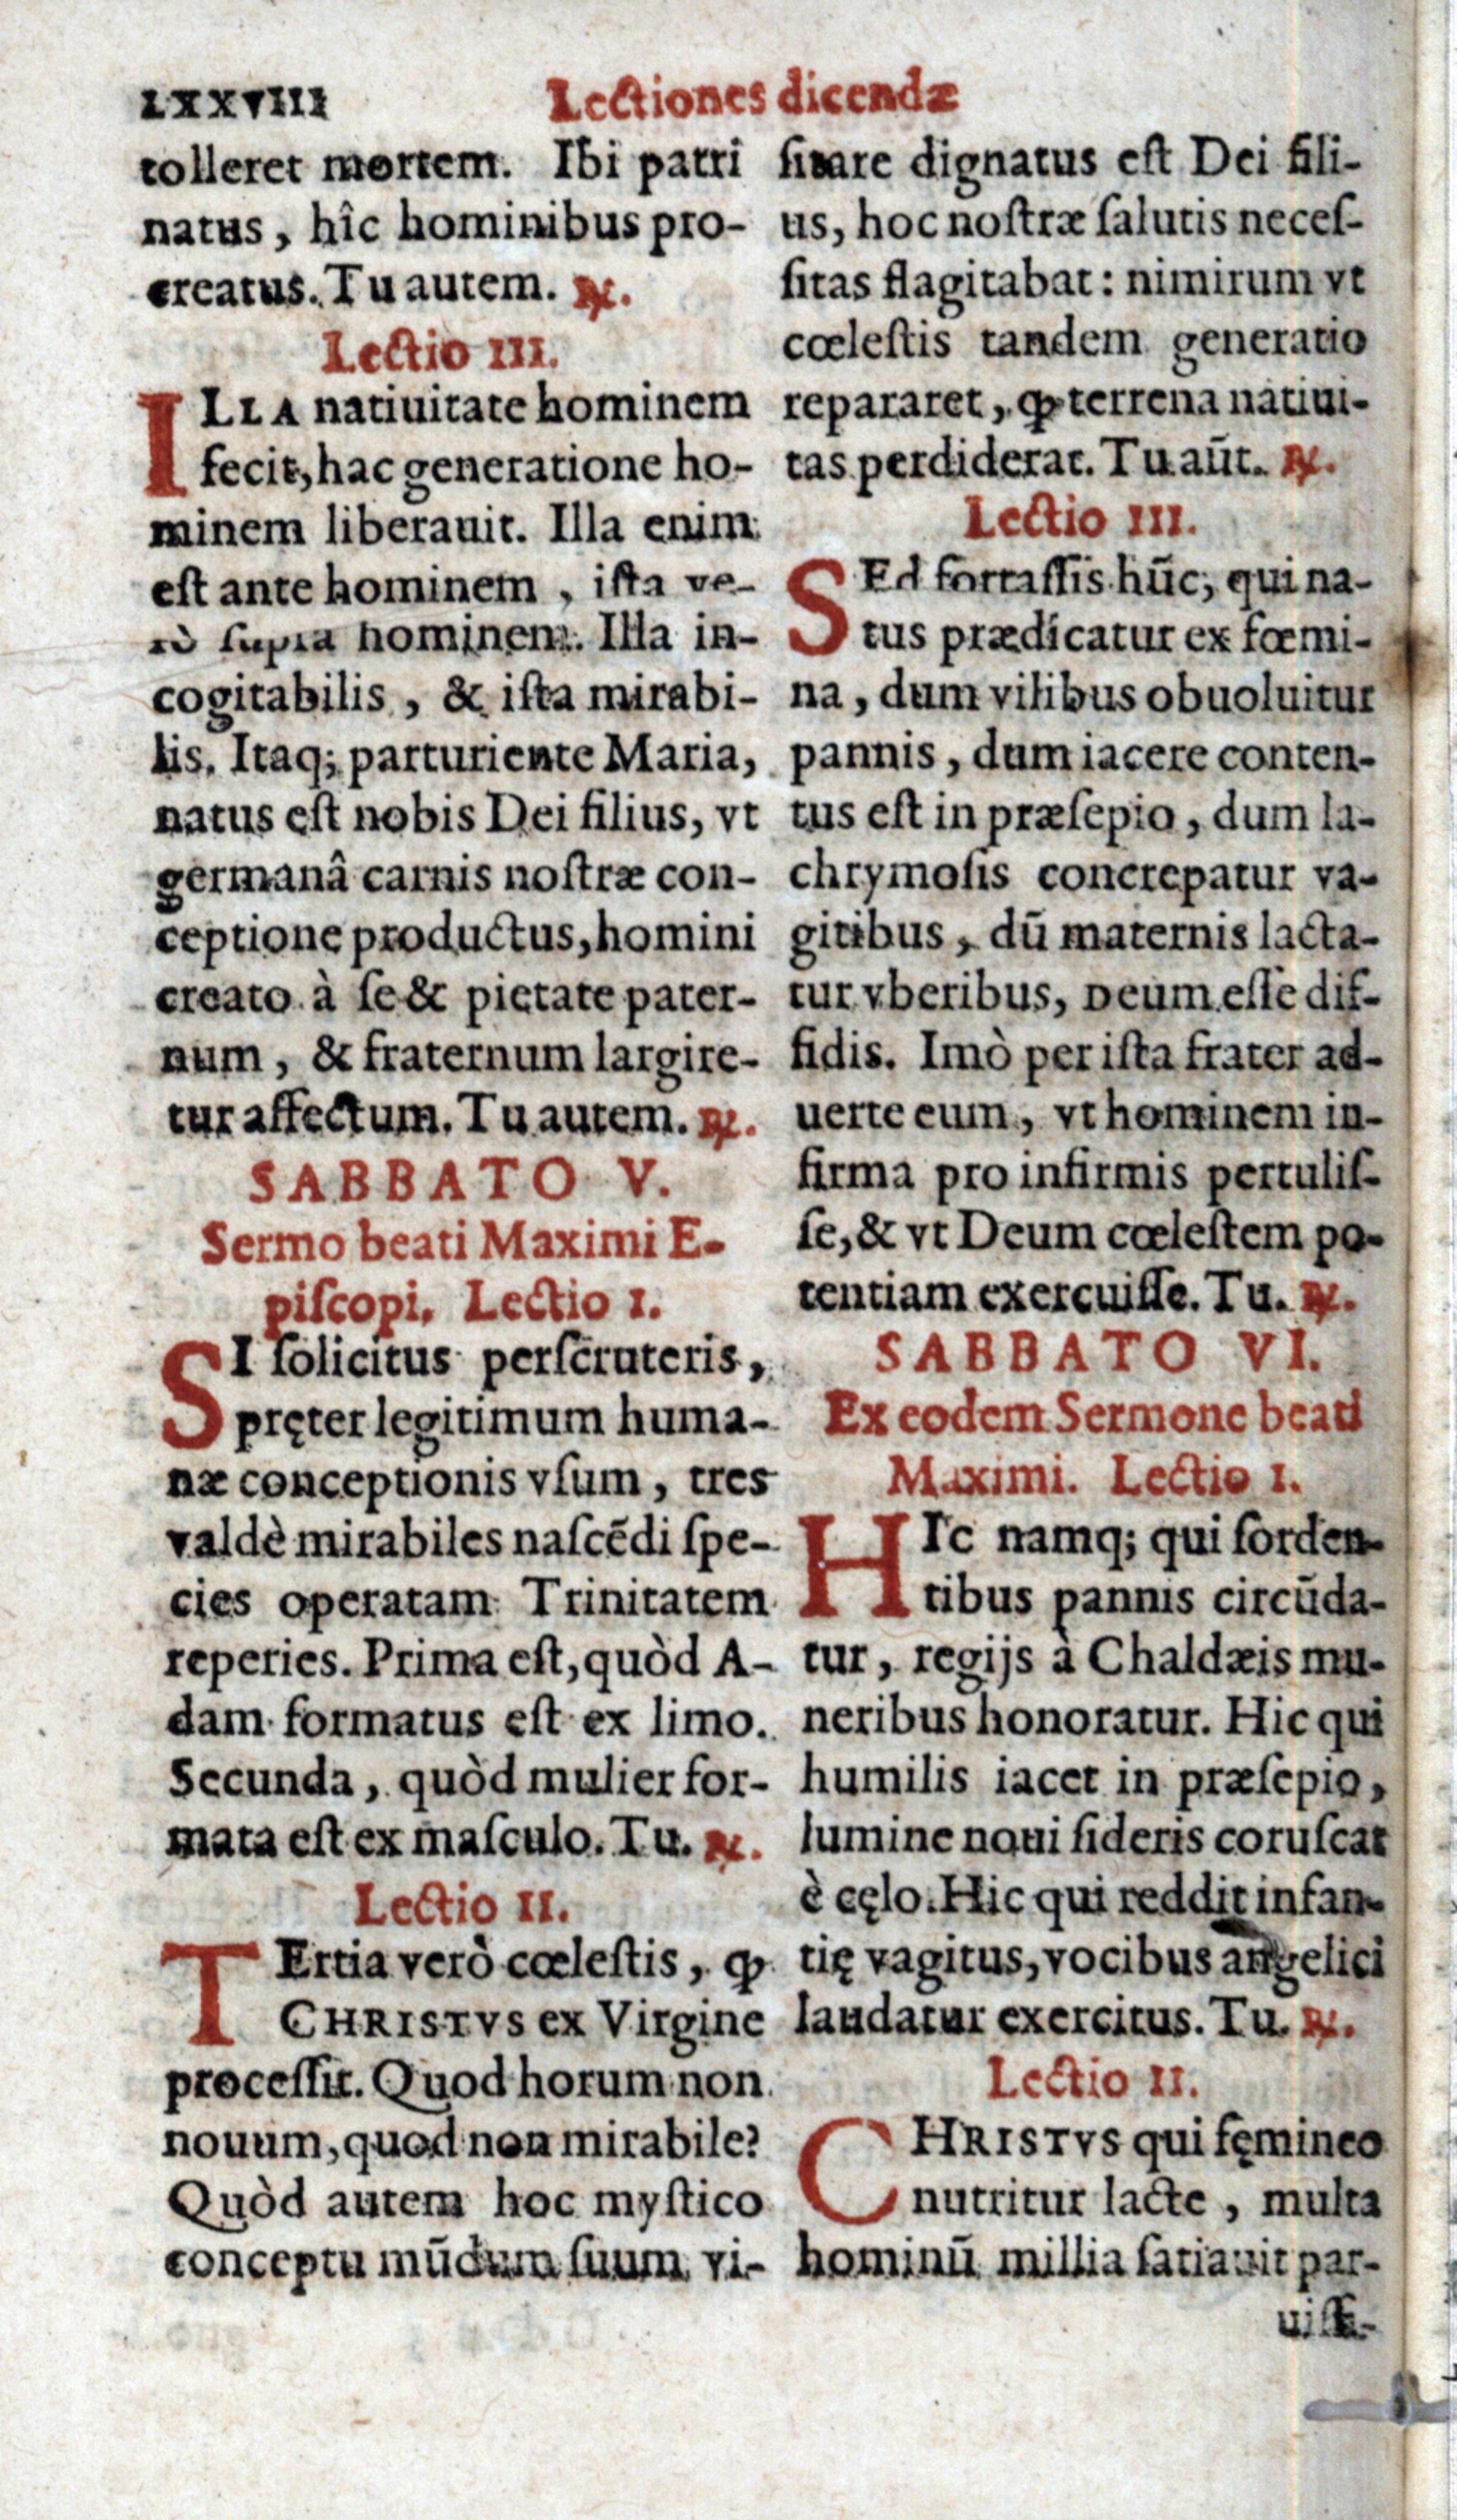 LXXVIII
Lectiones dicendæ
tolleret mortem. Ibi patri
natus, hîc hominibus pro-
creatus. Tu autem. ℟.
Lectio III.
ILLA natiuitate hominem
fecit, hac generatione ho-
minem liberauit. Illa enim
est ante hominem, ista ve-
rò supra hominem. Illa in-
cogitabilis, & ista mirabi-
lis. Itaq; parturiente Maria,
natus est nobis Dei filius, vt
germanâ carnis nostræ con-
ceptione productus, homini
creato à se & pietate pater-
num, & fraternum largire-
tur affectum. Tu autem. ℟.
SABBATO V.
Sermo beati Maximi E-
piscopi. Lectio I.
SI solicitus perscruteris,
pręter legitimum huma-
næ conceptionis vsum, tres
valdè mirabiles nascēdi spe-
cies operatam Trinitatem
reperies. Prima est, quòd A-
dam formatus est ex limo.
Secunda, quòd mulier for-
mata est ex masculo. Tu. ℟.
Lectio II.
TErtia verò cœlestis, ꝙ
CHRISTVS ex Virgine
processit. Quod horum non
nouum, quod non mirabile?
Quòd autem hoc mystico
conceptu mūdum suum vi-
sitare dignatus est Dei fili-
us, hoc nostræ salutis neces-
sitas flagitabat: nimirum vt
cœlestis tandem generatio
repararet, ꝙ terrena natiui-
tas perdiderat. Tu aūt. ℟.
Lectio III.
SEd fortassis hūc, qui na-
tus prædicatur ex fœmi-
na, dum vilibus obuoluitur
pannis, dum iacere conten-
tus est in præsepio, dum la-
chrymosis concrepatur va-
gitibus, dū maternis lacta-
tur vberibus, Deum esse dif-
fidis. Imò per ista frater ad-
uerte eum, vt hominem in-
firma pro infirmis pertulis-
se, & vt Deum cœlestem po-
tentiam exercuisse. Tu. ℟.
SABBATO VI.
Ex eodem Sermone beati
Maximi. Lectio I.
HIc namq; qui sorden-
tibus pannis circūda-
tur, regijs à Chaldæis mu-
neribus honoratur. Hic qui
humilis iacet in præsepio,
lumine noui sideris coruscat
è cęlo. Hic qui reddit infan-
tię vagitus, vocibus angelici
laudatur exercitus. Tu. ℟.
Lectio II.
CHRISTVS qui fęmineo
nutritur lacte, multa
hominū millia satiauit par-